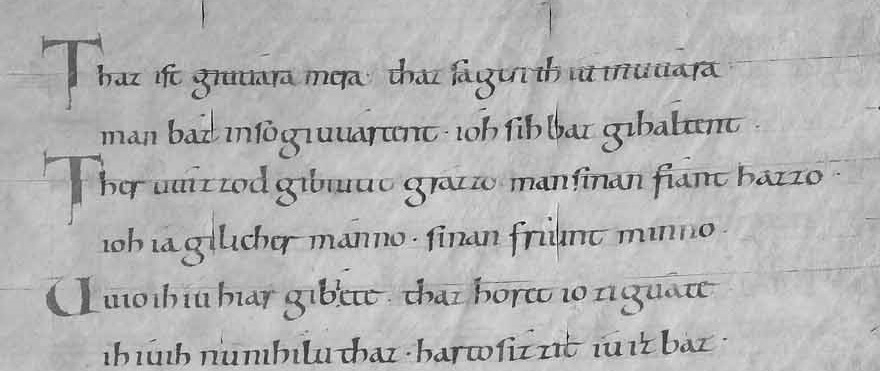 Thaz ist giuuara mera · thaz sagen ih iu in uuara
man baz in so giuuartent · ioh sih baz gibaltent ·
Ther uuizzod gibiutit grazzo man sinan fiant hazzo ·
ioh iagilicher manno · sinan friunt minno ·
Uuio ih iu hiar gibiete · thaz horet io zi guate
ih iu ih nu mihilu thaz · harto sizzit iu iz baz ·